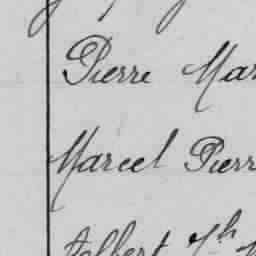 Pierre Mar
Marcel Pierr
Albert Jh